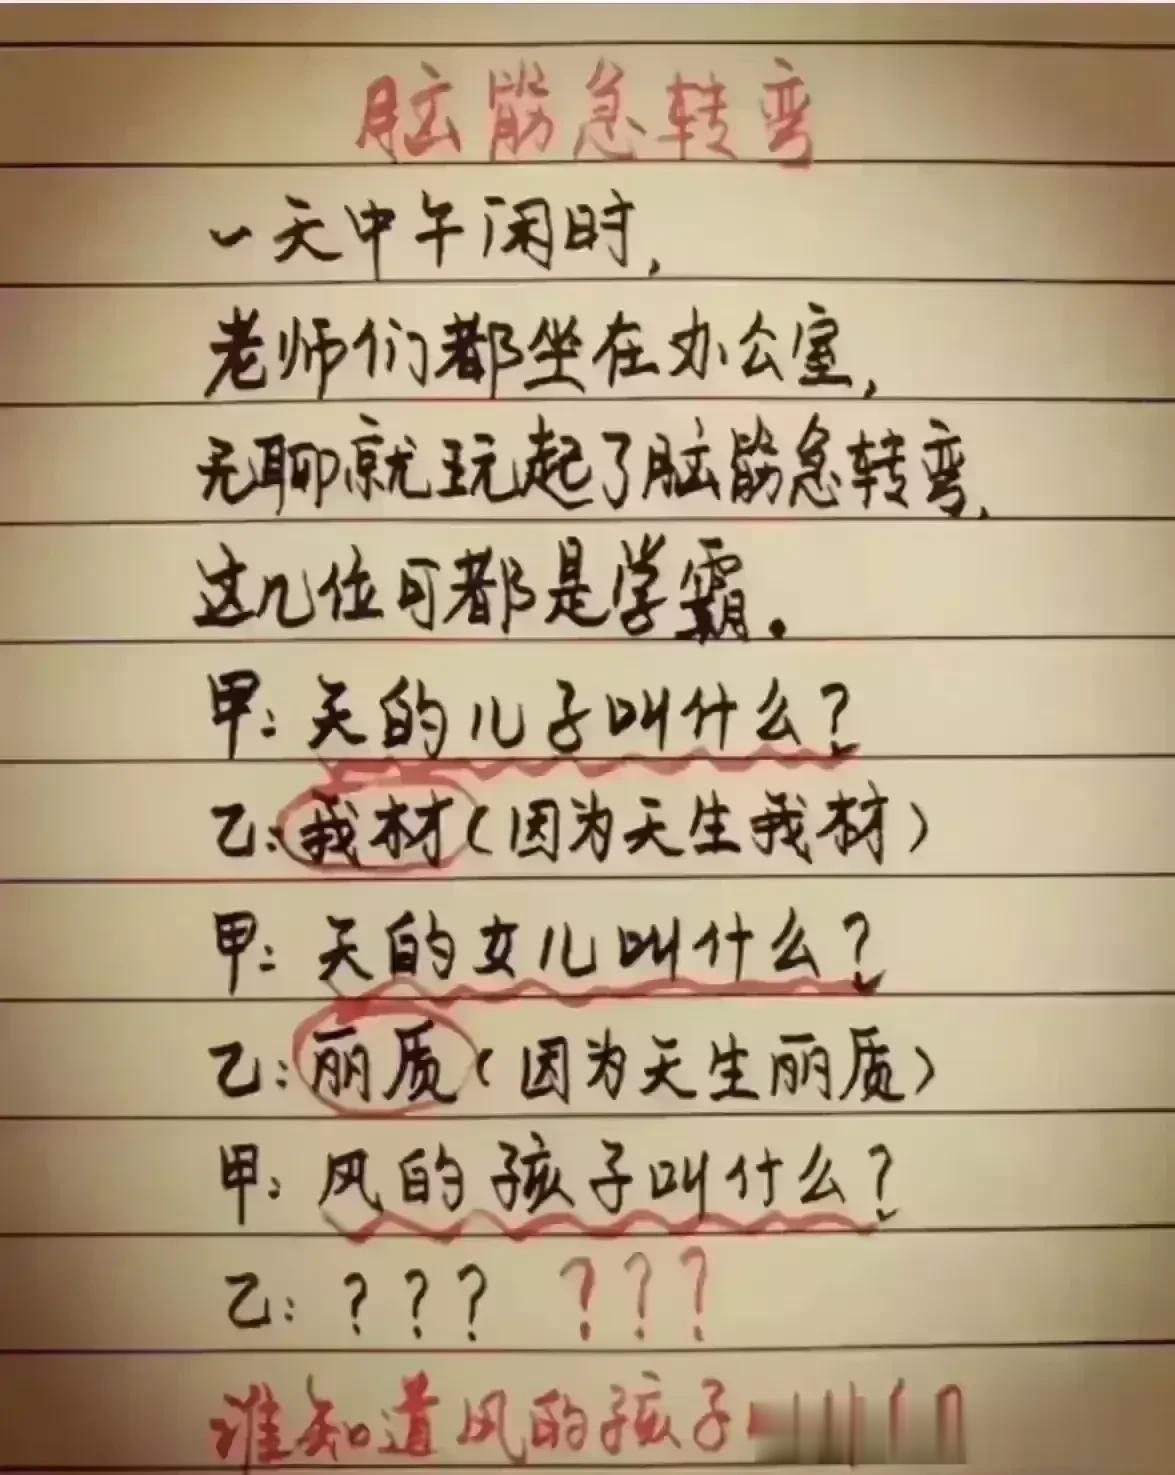 脑筋急转弯
一天中午闲时,
老师们都坐在办公室,
无聊就玩起了脑筋急转弯,
这几位可都是学霸。
甲:天的儿子叫什么?
乙:我材(因为天生我材)
甲:天的女儿叫什么?
乙:丽质(因为天生丽质)
甲:风的孩子叫什么?
乙:??? ???
谁知道风的孩子